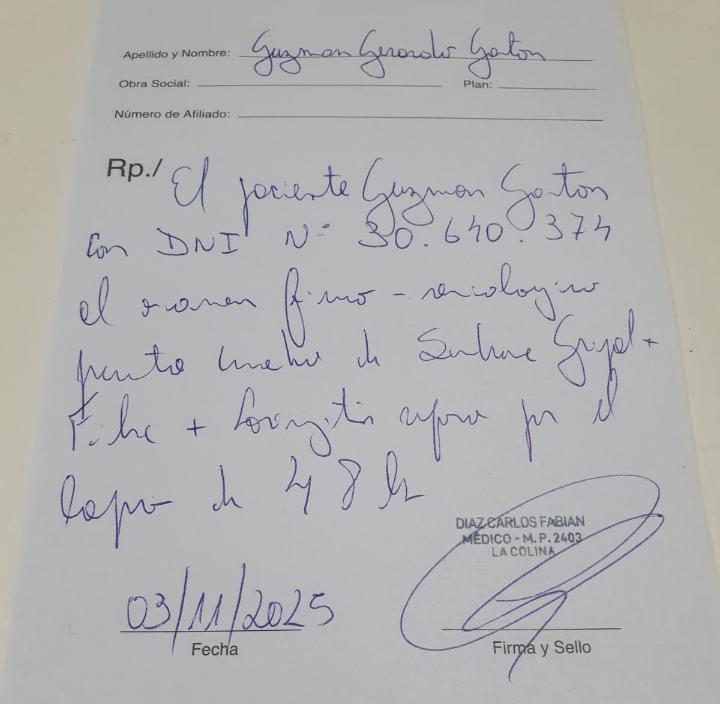 Apellido y Nombre: Guzman Gerardo Gaston
Obra Social: Plan:
Número de Afiliado:
Rp./ El paciente Guzman Gaston
con DNI N° 30.640.374
al examen fisico - semiologico
presenta cuadro de Sindrome Gripal +
Fiebre + Laringitis aguda por el
lapso de 48 hs
DIAZ CARLOS FABIAN
MÉDICO - M.P. 2403
LA COLINA
03/11/2025
Fecha Firma y Sello